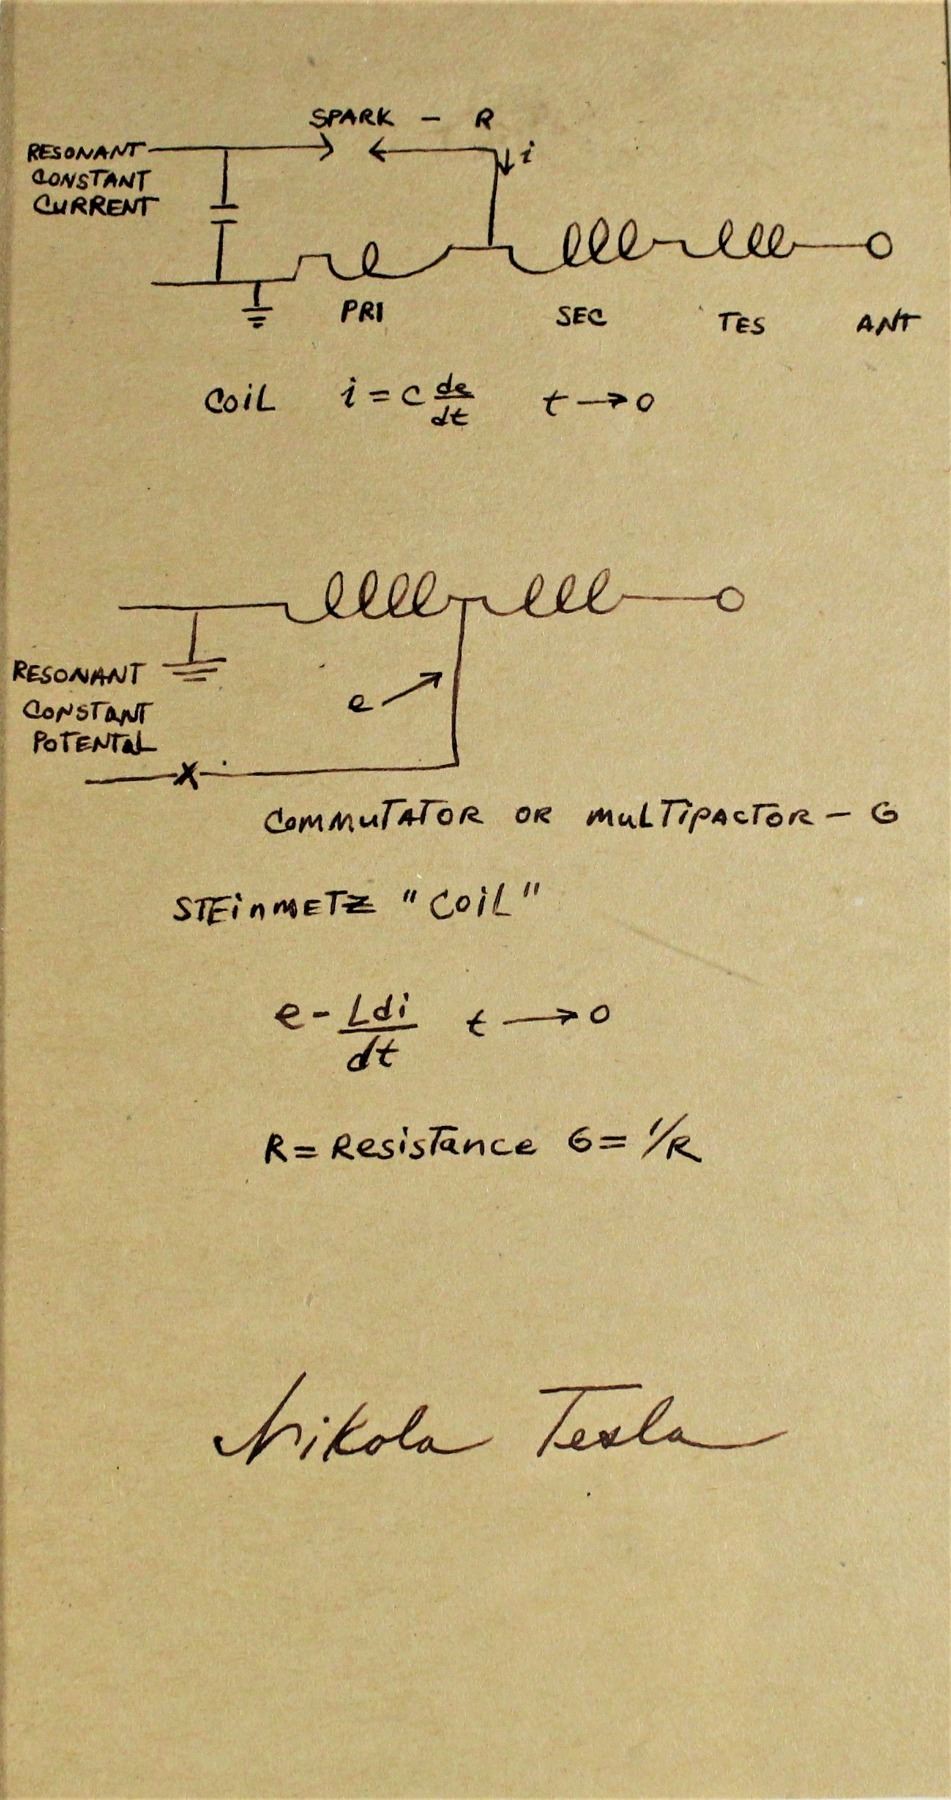 SPARK - R
RESONANT
CONSTANT
CURRENT
i
PRI SEC TES ANT
COIL i = C de/dt t → 0
RESONANT
CONSTANT
POTENTAL
e
X
COMMUTATOR OR MULTIPACTOR - G
STEINMETZ "COIL"
e - Ldi/dt t → 0
R = Resistance G = 1/R
Nikola Tesla